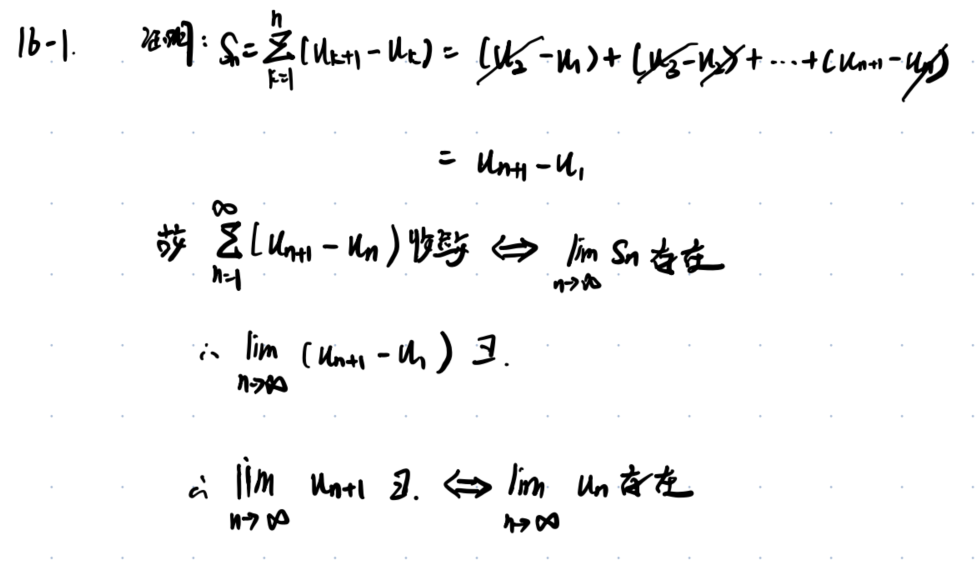 16-1. 证明: Sₙ = ∑ₖ₌₁ⁿ (uₖ₊₁ - uₖ) = (u₂ - u₁) + (u₃ - u₂) + ⋯ + (uₙ₊₁ - uₙ)
= uₙ₊₁ - u₁
若 ∑ₙ₌₁^∞ (uₙ₊₁ - uₙ) 收敛 ⇔ lim_{n→∞} Sₙ 存在
∴ lim_{n→∞} (uₙ₊₁ - u₁) ∃.
∴ lim_{n→∞} uₙ₊₁ ∃. ⇔ lim_{n→∞} uₙ 存在